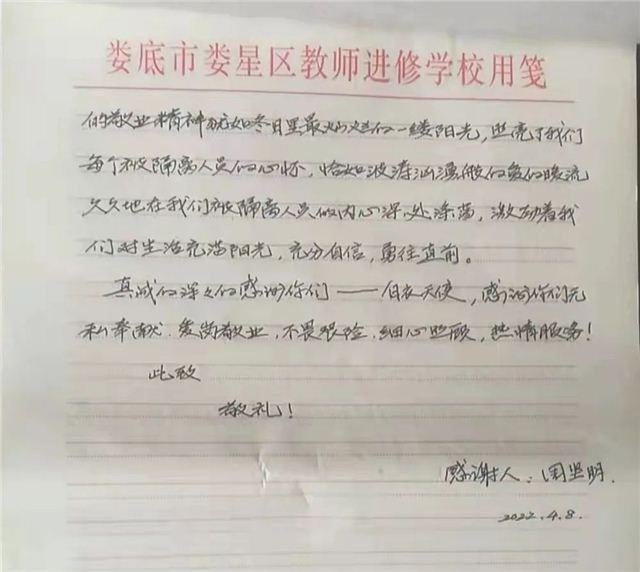 娄底市娄星区教师进修学校用笺
的敬业精神犹如冬日里最灿烂的一缕阳光，照亮了我们
每个被隔离人员的心怀，恰如波涛汹涌般的爱的暖流
久久地在我们被隔离人员的内心深处涤荡，激励着我
们对生活充满阳光，充分自信，勇往直前。
真诚的深深的感谢你们——白衣天使，感谢你们无
私奉献．爱岗敬业，不畏艰险．细心照顾，热情服务！
此致
敬礼！
感谢人：周坚明．
2022.4.8.